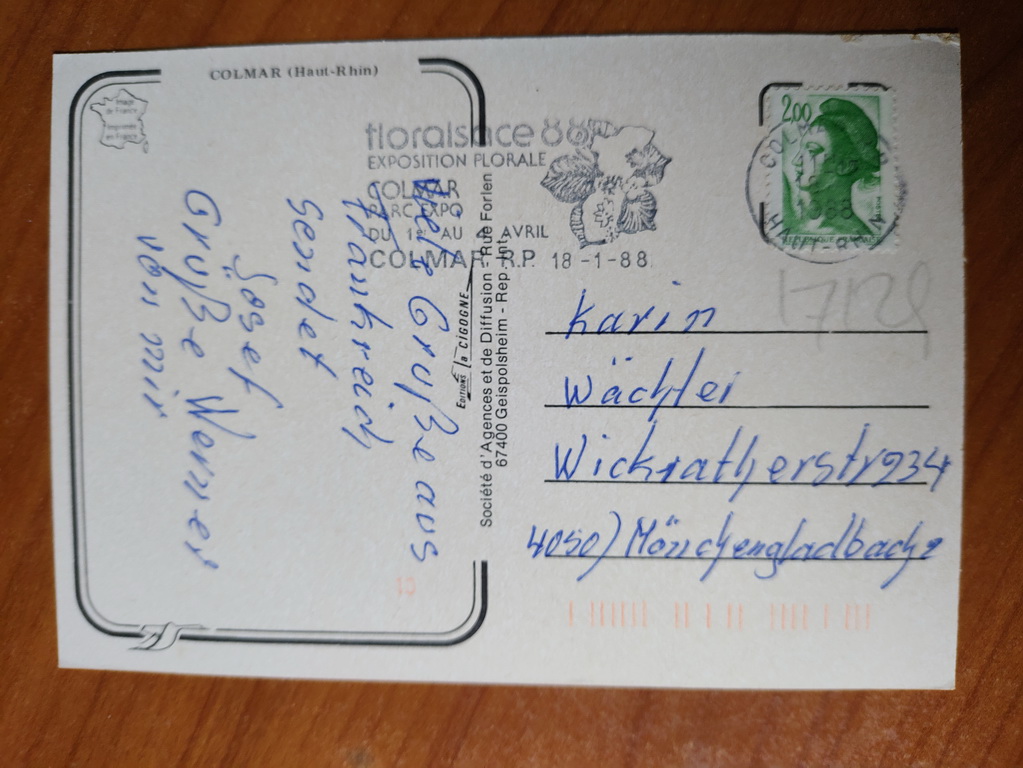 COLMAR (Haut-Rhin)
Image
de France
floralsace 88
EXPOSITION FLORALE
COLMAR
PARC EXPO
DU 1er AU 4 AVRIL
COLMAR R.P. 18-1-88
2,00
HAUT-RHIN
Viele Grüße aus
Frankreich
sendet
Josef
Grüße Werner
von mir
EDITIONS la CIGOGNE
Société d'Agences et de Diffusion - Rue Forlen
67400 Geispolsheim - Rep. Int.
17129
Karin
Wächter
Wickratherstr 234
4050) Mönchengladbach 2